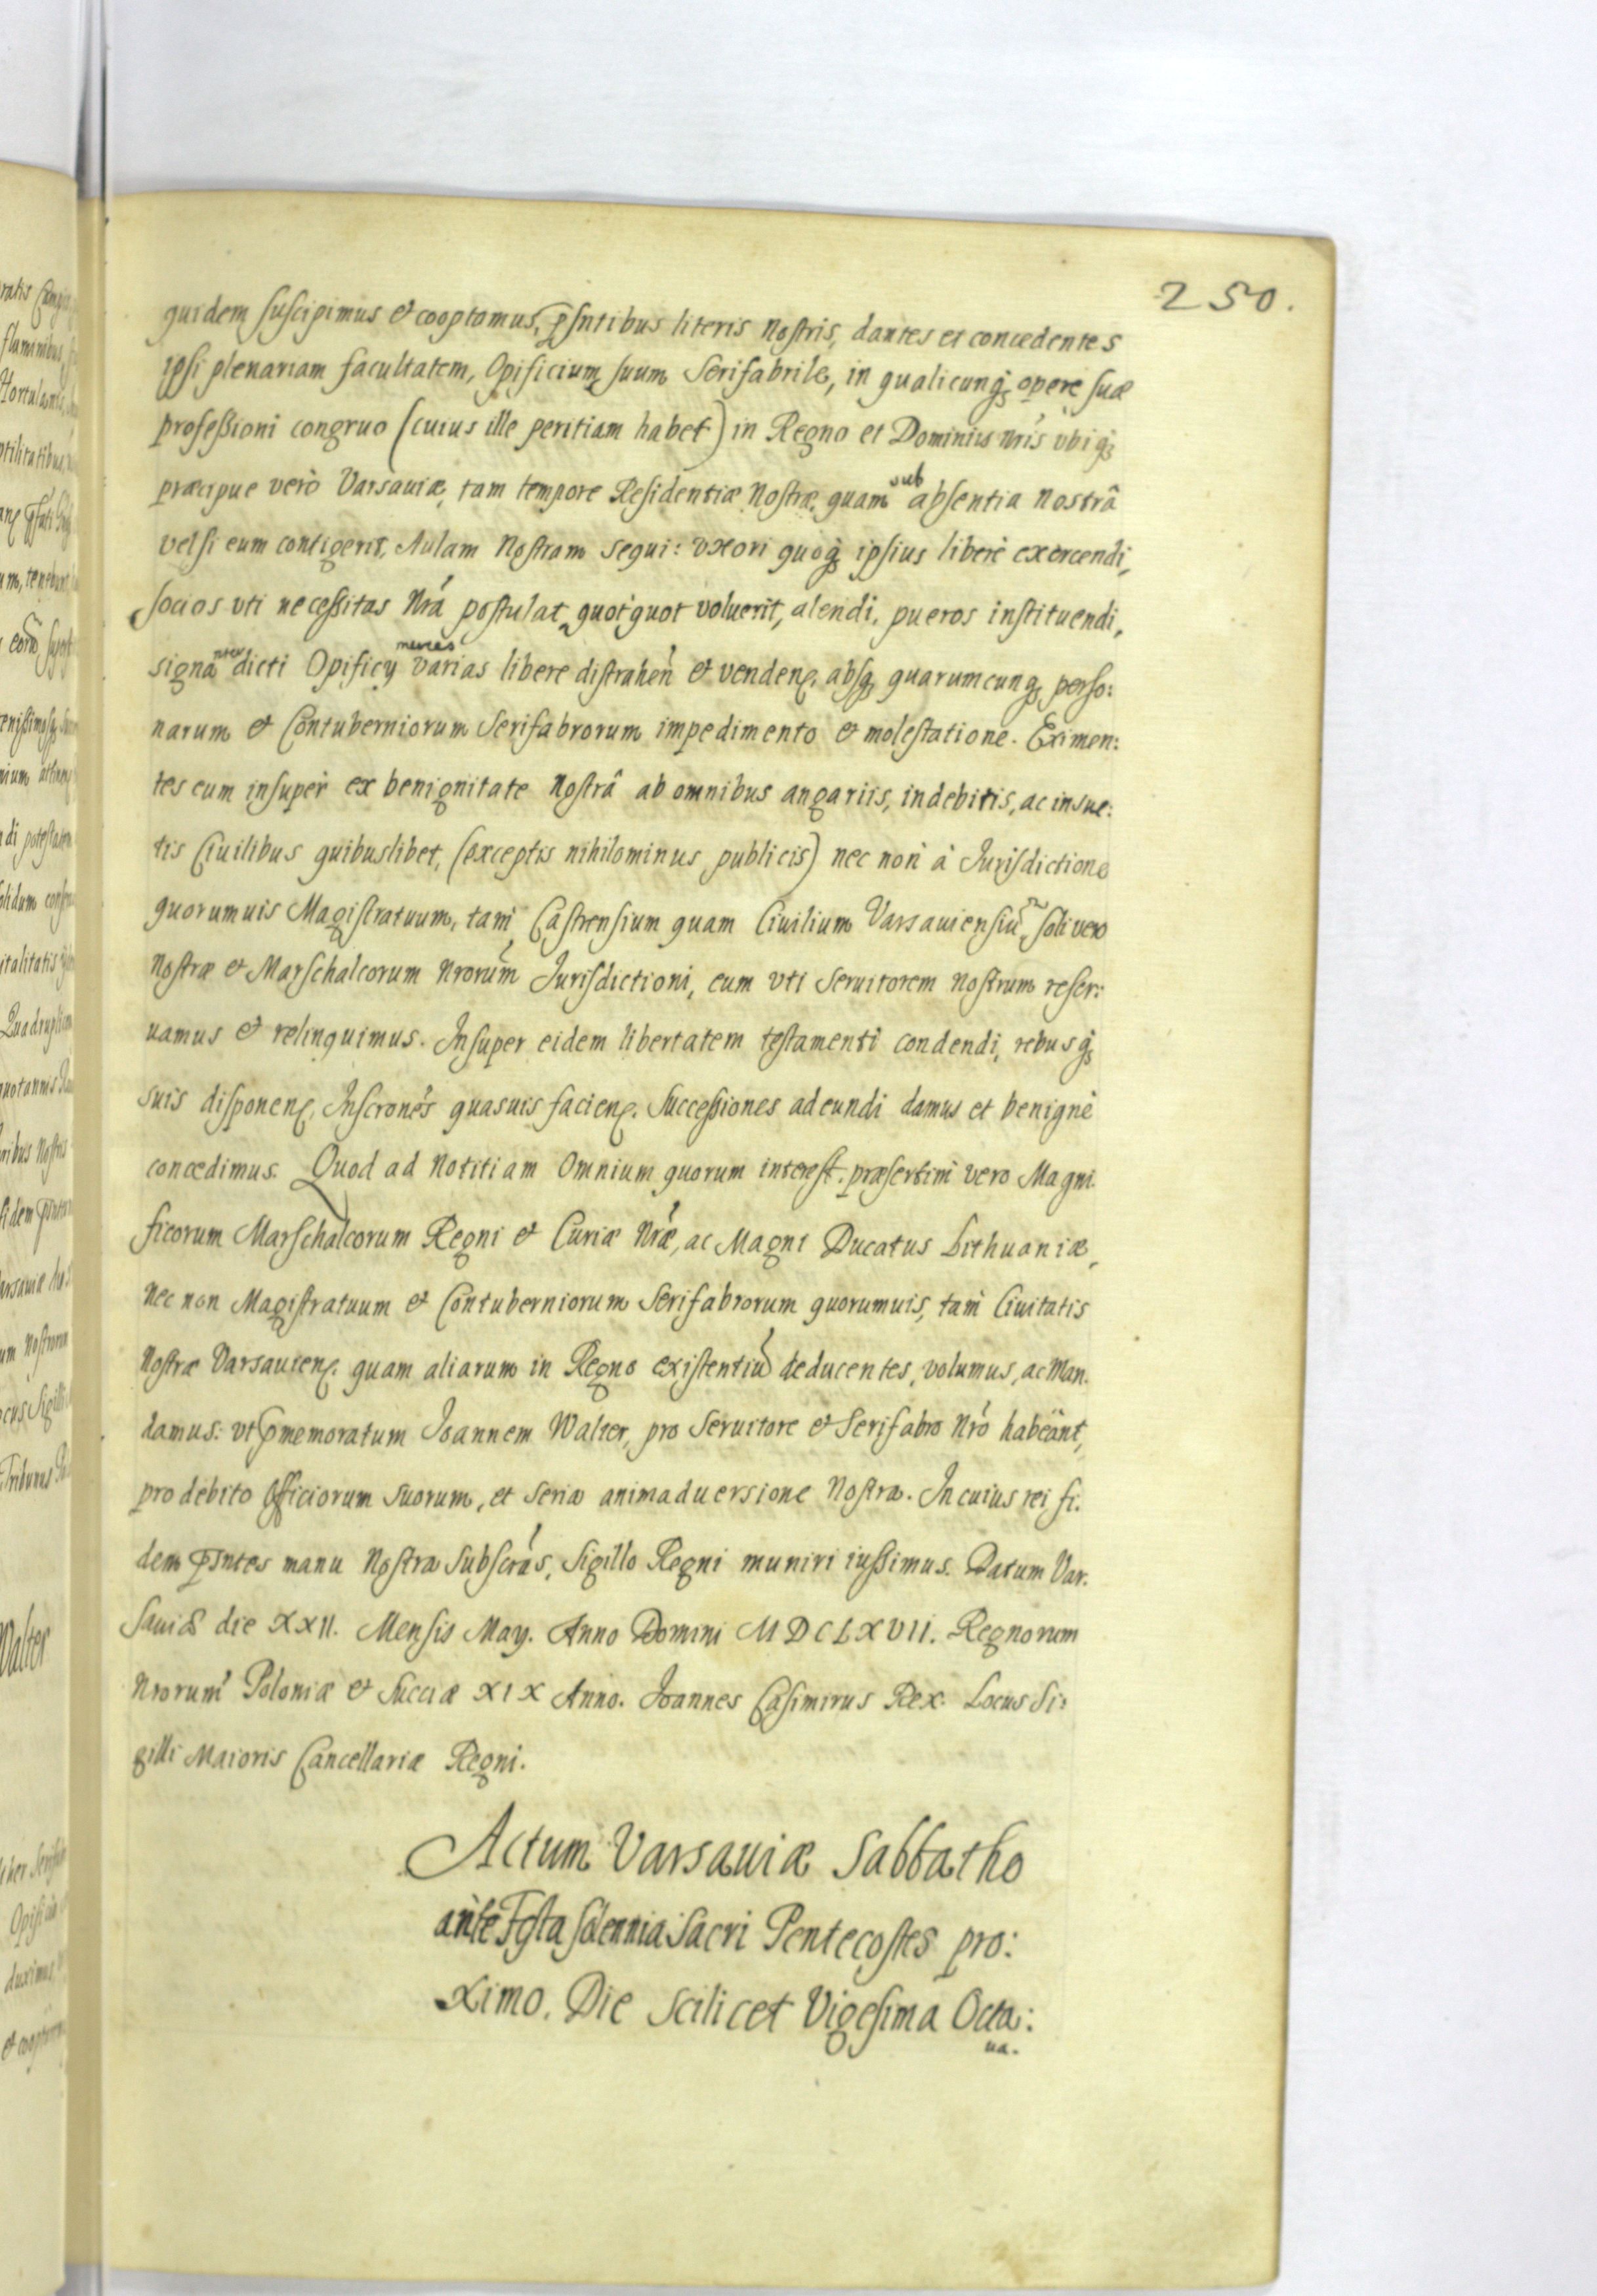 250.
quidem suscipimus et cooptamus, psntibus literis Nostris, dantes et concedentes
ipsi plenariam facultatem, Opificium suum Serifabrile, in qualicunq; opere suæ
professioni congruo (cuius ille peritiam habet) in Regno et Dominiis Nris vbiq;
præcipue verò Varsauiæ, tam tempore Residentiæ Nostræ, quam sub absentia nostrâ
vel si eum contigerit, Aulam Nostram sequi: vxori quoq; ipsius liberè exercendi,
socios vti necessitas Nra postulat quotquot voluerit, alendi, pueros instituendi,
signanter dicti Opificy merces varias libere distrahen et venden. absq; quarumcunq; perso:
narum et Contuberniorum Serifabrorum impedimento et molestatione. Eximen:
tes eum insuper ex benignitate Nostrâ ab omnibus angariis, indebitis, ac insue:
tis Ciuilibus quibuslibet, (exceptis nihilominus publicis) nec non à Jurisdictione
quorumuis Magistratuum, tam Castrensium quam Ciuilium Varsauiensiu, soli vero
Nostræ et Marschalcorum Nrorum Jurisdictioni, eum vti Seruitorem Nostrum reser:
uamus et relinquimus. Insuper eidem libertatem testamenti condendi, rebusq;
suis disponen. Inscrones quasuis facien. Successiones adeundi damus et benignè
concedimus. Quod ad Notitiam Omnium quorum interest. præsertim vero Magni.
ficorum Marschalcorum Regni et Curiæ Nræ, ac Magni Ducatus Lithuaniæ,
Nec non Magistratuum et Contuberniorum Serifabrorum quorumuis, tam Ciuitatis
Nostræ Varsauien. quam aliarum in Regno existentiu deducentes, volumus, ac Man.
damus: vt pmemoratum Joannem Walter, pro Seruitore et Serifabro Nro habeant,
pro debito Officiorum suorum, et seria animaduersione Nostra. In cuius rei fi.
dem psntes manu Nostra subscras, Sigillo Regni muniri iussimus. Datum Var.
sauiæ die XXII. Mensis May. Anno Domini MDCLXVII. Regnorum
Nrorum Poloniæ et Sueciæ XIX Anno. Joannes Casimirus Rex. Locus Si:
gilli Maioris Cancellariæ Regni.
Actum Varsauiæ Sabbatho
ante Festa Solennia Sacri Pentecostes pro:
ximo. Die scilicet Vigesima Octa:
ua.